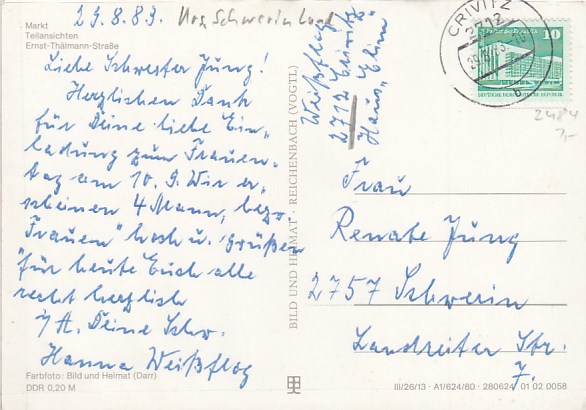 29.8.83.
Markt
Teilansichten
Ernst-Thälmann-Straße
Liebe Schwester Jung!
Herzlichen Dank
für Deine liebe Ein„
ladung zum Frauen„
tag am 10. 9. Wir er„
scheinen 4 Mann, bezw.
"Frauen" hoch u. grüßen
für heute Euch alle
recht herzlich
i/A. Deine Schw.
Hanna Weißflog
Farbfoto: Bild und Heimat (Darr)
DDR 0,20 M
BILD UND HEIMAT REICHENBACH (VOGTL)
Weißflog
2712 Crivitz
Haus „Elim"
CRIVITZ
2712
b
10
DEUTSCHE DEMOKRATISCHE REPUBLIK
2484
Frau
Renate Jung
2757 Schwerin
Landreiter Str.
7.
III/26/13 · A1/624/80 · 280624 01 02 0058